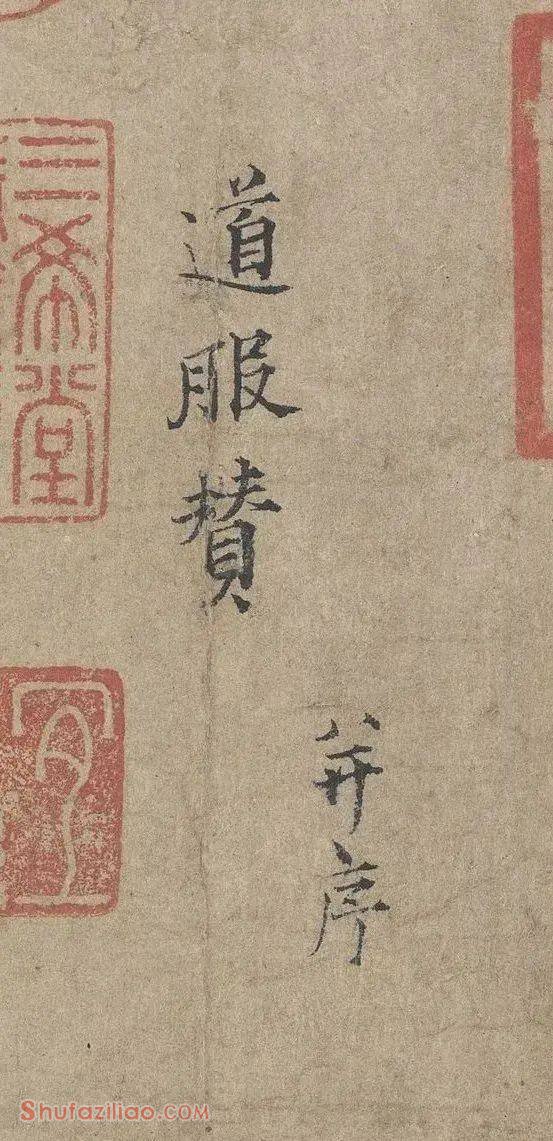 道服賛
并序
三希堂
Shufaziliao.COM